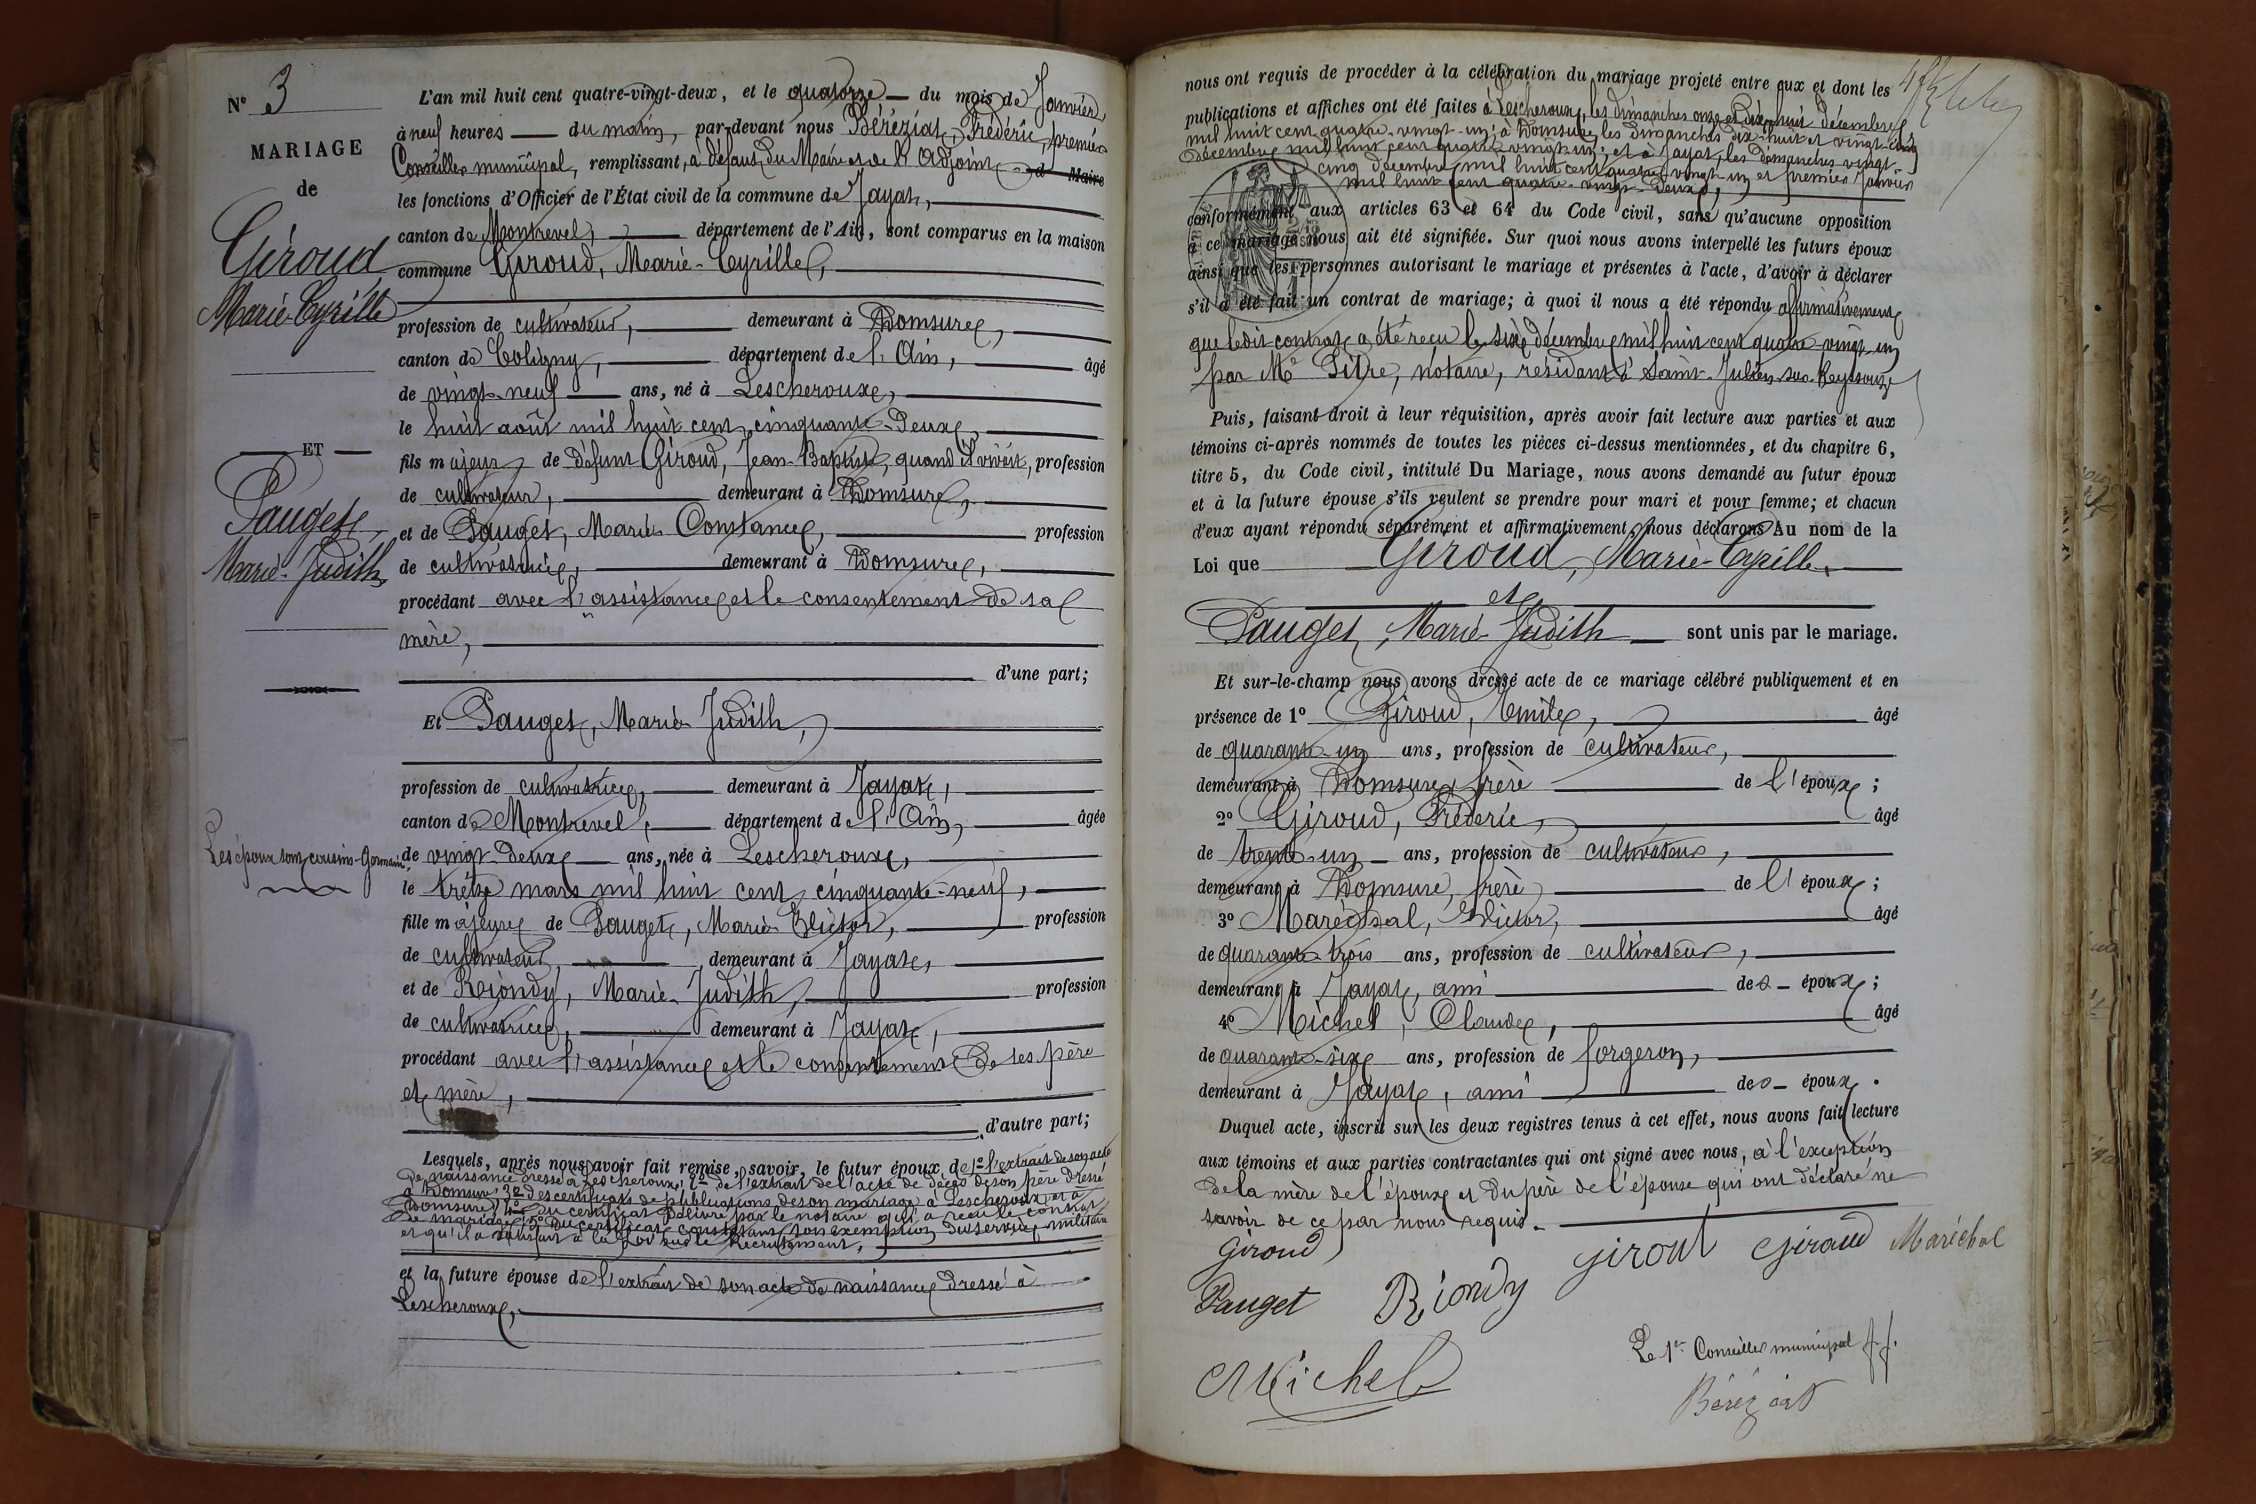 N° 3
MARIAGE
de
Giroud
Marie-Cyrille
ET
Pauget,
Marie-Judith
Les époux sont cousins-Germains
L'an mil huit cent quatre-vingt-deux, et le quatorze du mois de Janvier,
à neuf heures du matin, par-devant nous Béréziat, Frédéric, premier
Conseiller municipal, remplissant, à défaut du Maire et de l'Adjoint, Maire
les fonctions d'Officier de l'État civil de la commune de Jayat,
canton de Montrevel, département de l'Ain, sont comparus en la maison
commune Giroud, Marie-Cyrille,
profession de cultivateur, demeurant à Domsure,
canton de Coligny, département de l'Ain, âgé
de vingt-neuf ans, né à Lescheroux,
le huit août mil huit cent cinquante-deux,
fils majeur de défunt Giroud, Jean-Baptiste, quand il vivait, profession
de cultivateur, demeurant à Domsure,
et de Pauget, Marie Constance, profession
de cultivatrice, demeurant à Domsure,
procédant avec l'assistance et le consentement de sa
mère,
d'une part;
Et Pauget, Marie Judith,
profession de cultivatrice, demeurant à Jayat,
canton de Montrevel, département de l'Ain, âgée
de vingt-deux ans, née à Lescheroux,
le treize mars mil huit cent cinquante-neuf,
fille majeure de Pauget, Marie Victor, profession
de cultivateur, demeurant à Jayat,
et de Riondy, Marie-Judith, profession
de cultivatrice, demeurant à Jayat,
procédant avec l'assistance et le consentement de ses père
et mère,
d'autre part;
Lesquels, après nous avoir fait remise, savoir, le futur époux de 1° l'extrait de son acte
de naissance dressé à Lescheroux, 2° de l'extrait de l'acte de décès de son père dressé
à Domsure, 3° des certificats de publications de son mariage à Lescheroux et à
Domsure, 4° du certificat délivré par le notaire qui a reçu le contrat
de mariage, 5° du certificat constatant son exemption du service militaire
et qu'il a satisfait à la Loi sur le Recrutement,
et la future épouse de l'extrait de son acte de naissance dressé à
Lescheroux,
nous ont requis de procéder à la célébration du mariage projeté entre eux et dont les
publications et affiches ont été faites à Lescheroux, les dimanches onze et dix-huit décembre
mil huit cent quatre-vingt-un; à Domsure, les dimanches dix-huit et vingt-cinq
décembre mil huit cent quatre-vingt-un; et à Jayat, les dimanches vingt-
cinq décembre mil huit cent quatre-vingt-un et premier Janvier
mil huit cent quatre-vingt-deux,
conformément aux articles 63 et 64 du Code civil, sans qu'aucune opposition
à ce mariage nous ait été signifiée. Sur quoi nous avons interpellé les futurs époux
ainsi que les personnes autorisant le mariage et présentes à l'acte, d'avoir à déclarer
s'il a été fait un contrat de mariage; à quoi il nous a été répondu affirmativement
que ledit contrat a été reçu le six décembre mil huit cent quatre-vingt-un
par Me Pitre, notaire, résidant à Saint-Julien-sur-Reyssouze,
Puis, faisant droit à leur réquisition, après avoir fait lecture aux parties et aux
témoins ci-après nommés de toutes les pièces ci-dessus mentionnées, et du chapitre 6,
titre 5, du Code civil, intitulé Du Mariage, nous avons demandé au futur époux
et à la future épouse s'ils veulent se prendre pour mari et pour femme; et chacun
d'eux ayant répondu séparément et affirmativement, nous déclarons Au nom de la
Loi que Giroud, Marie-Cyrille,
et
Pauget, Marie-Judith sont unis par le mariage.
Et sur-le-champ nous avons dressé acte de ce mariage célébré publiquement et en
présence de 1° Giroud, Emile, âgé
de quarante-un ans, profession de cultivateur,
demeurant à Domsure, frère de l'époux;
2° Giroud, Frédéric, âgé
de trente-un ans, profession de cultivateur,
demeurant à Domsure, frère de l'époux;
3° Maréchal, Victor, âgé
de quarante-trois ans, profession de cultivateur,
demeurant à Jayat, ami des époux;
4° Michel, Claude, âgé
de quarante-six ans, profession de forgeron,
demeurant à Jayat, ami des époux.
Duquel acte, inscrit sur les deux registres tenus à cet effet, nous avons fait lecture
aux témoins et aux parties contractantes qui ont signé avec nous, à l'exception
de la mère de l'époux et du père de l'épouse qui ont déclaré ne
savoir de ce par nous requis.
Giroud giroud Giroud Maréchal
Pauget Riondy
Michel
Le 1er Conseiller municipal f.f.
Béréziat